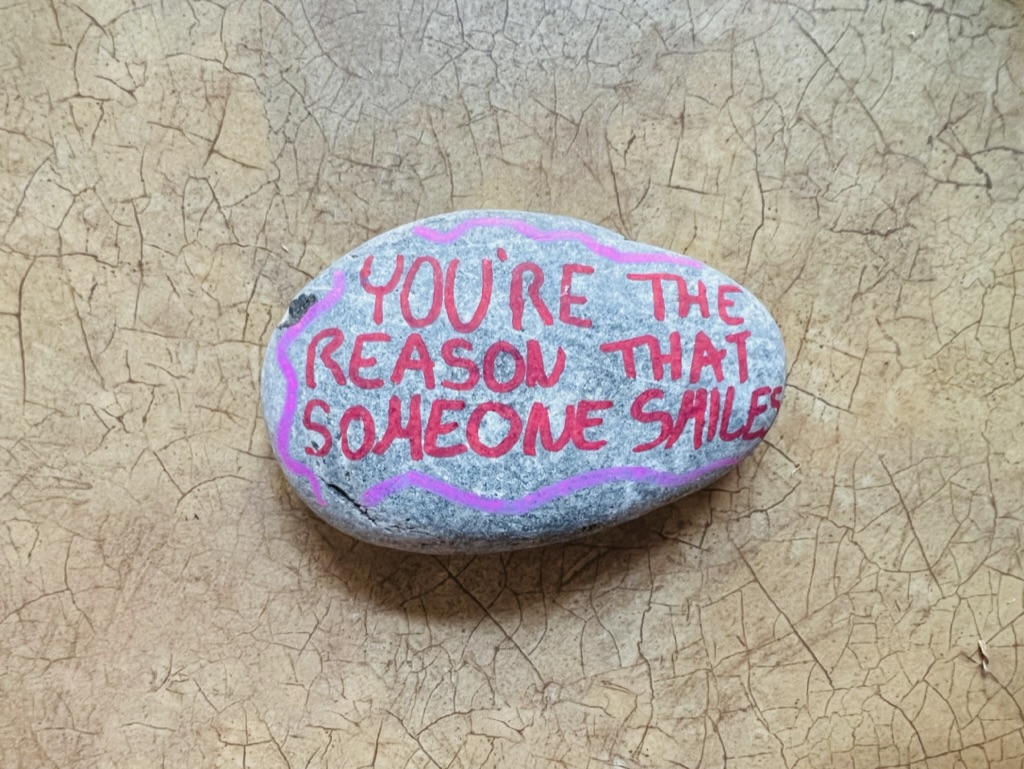 YOU'RE THE
REASON THAT
SOMEONE SMILES